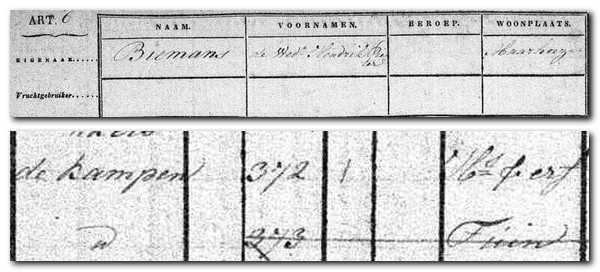 ART. 6
NAAM. VOORNAMEN. BEROEP. WOONPLAATS.
EIGENAAR..... Biemans de Wed. Hendrik Maarheeze
Vruchtgebruiker....
de kampen 372 1 Hs & erf
d 273 Tuin